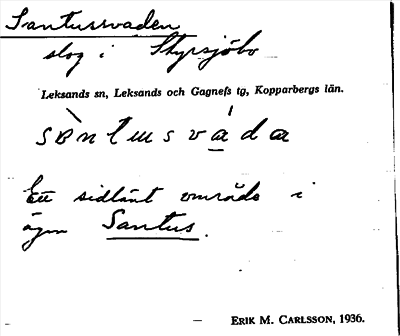 Santussvaden
slog i Styrsjöbo
Leksands sn, Leksands och Gagnefs tg, Kopparbergs län.
Ett sidlänt område i
ägon Santus.
– ERIK M. CARLSSON, 1936.